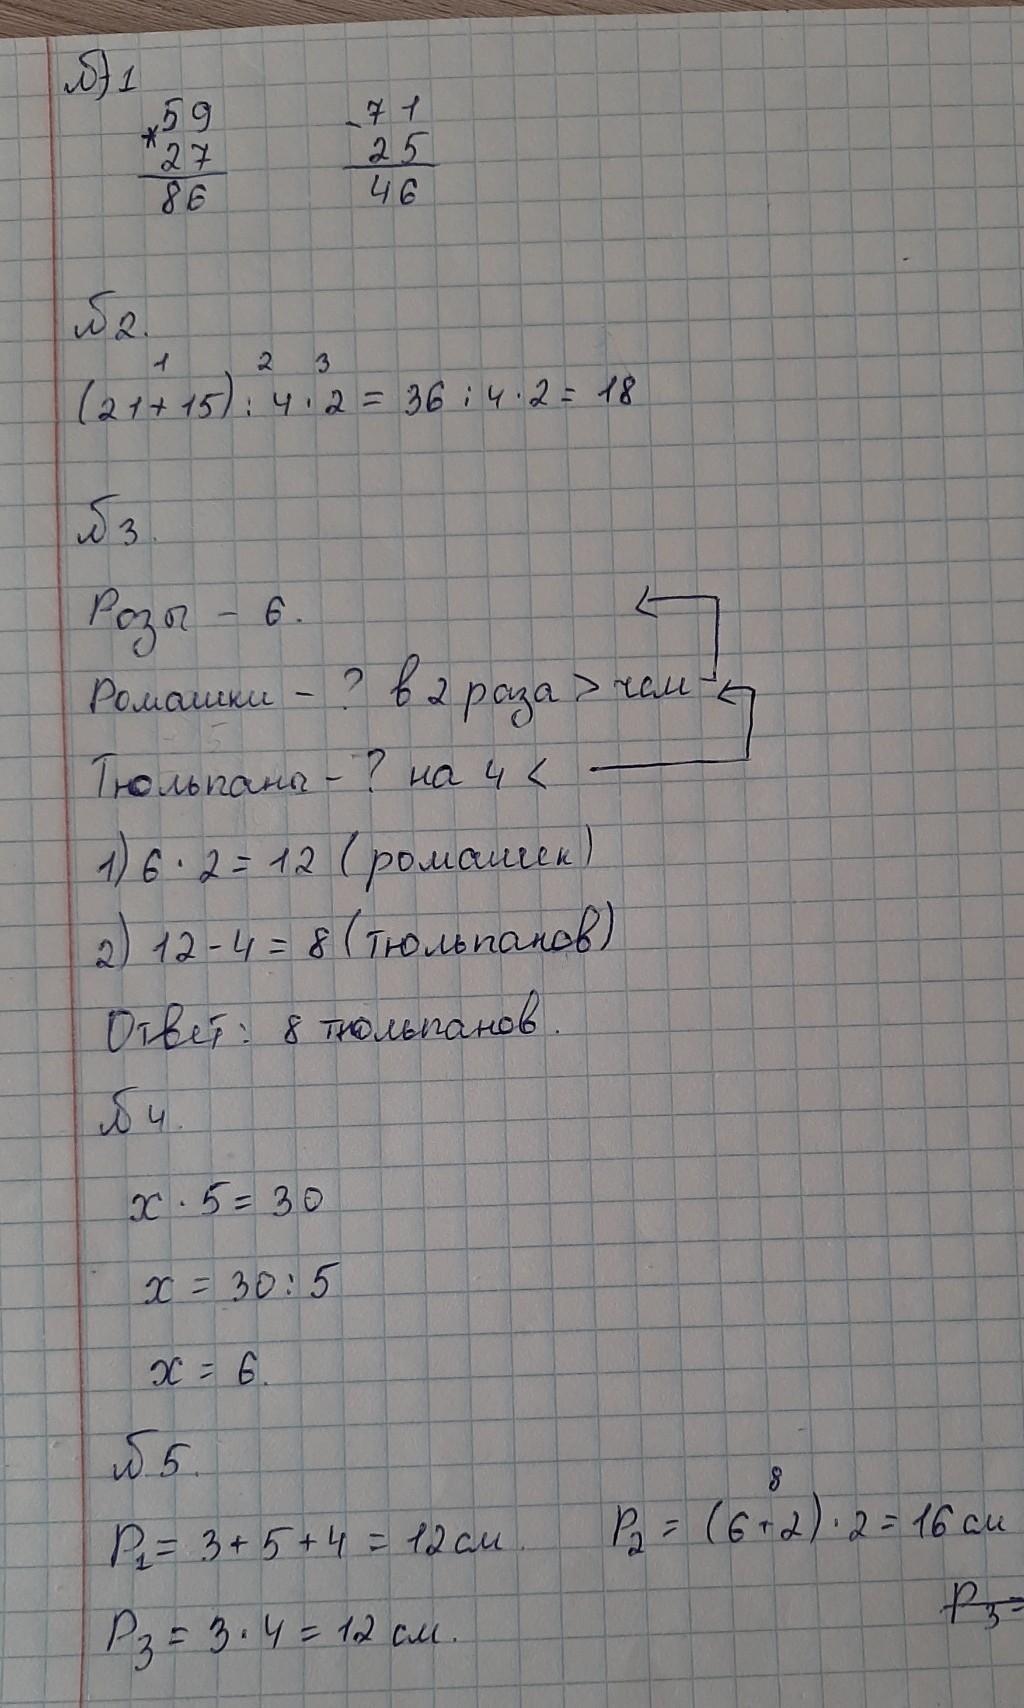 №1
*59 -71
27 25
86 46
№2.
1 2 3
(21+15):4·2=36:4·2=18
№3.
Розы - 6.
Ромашки - ? в 2 раза > чем
Тюльпаны - ? на 4 <
1) 6·2=12 (ромашек)
2) 12-4=8 (тюльпанов)
Ответ: 8 тюльпанов.
№4.
x·5=30
x=30:5
x=6.
№5.
8
P1=3+5+4=12 см. P2=(6+2)·2=16 см
P3=
P3=3·4=12 см.